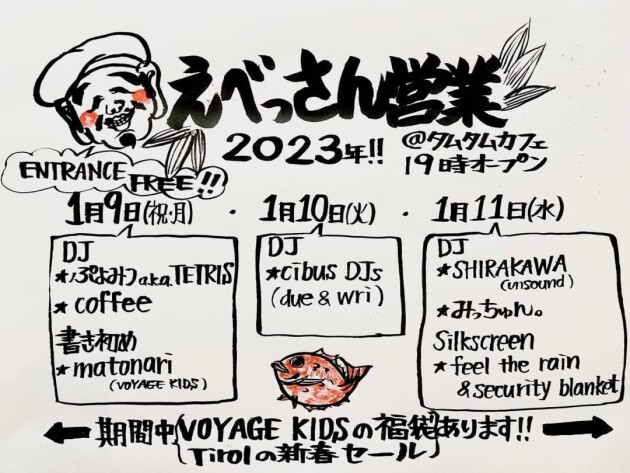 えべっさん営業
2023年!!
@タムタムカフェ
19時オープン
ENTRANCE
FREE!!
1月9日(祝・月)
DJ
★ぷよみつ a.k.a. TETRIS
★coffee
書き初め
★matonari
(VOYAGE KIDS)
・1月10日(火)
DJ
★cibus DJs
(due & wri)
・1月11日(水)
DJ
★SHIRAKAWA
(unsound)
★みっちゅん。
Silkscreen
★feel the rain
& security blanket
期間中 VOYAGE KIDSの福袋 あります!!
Tirolの新春セール